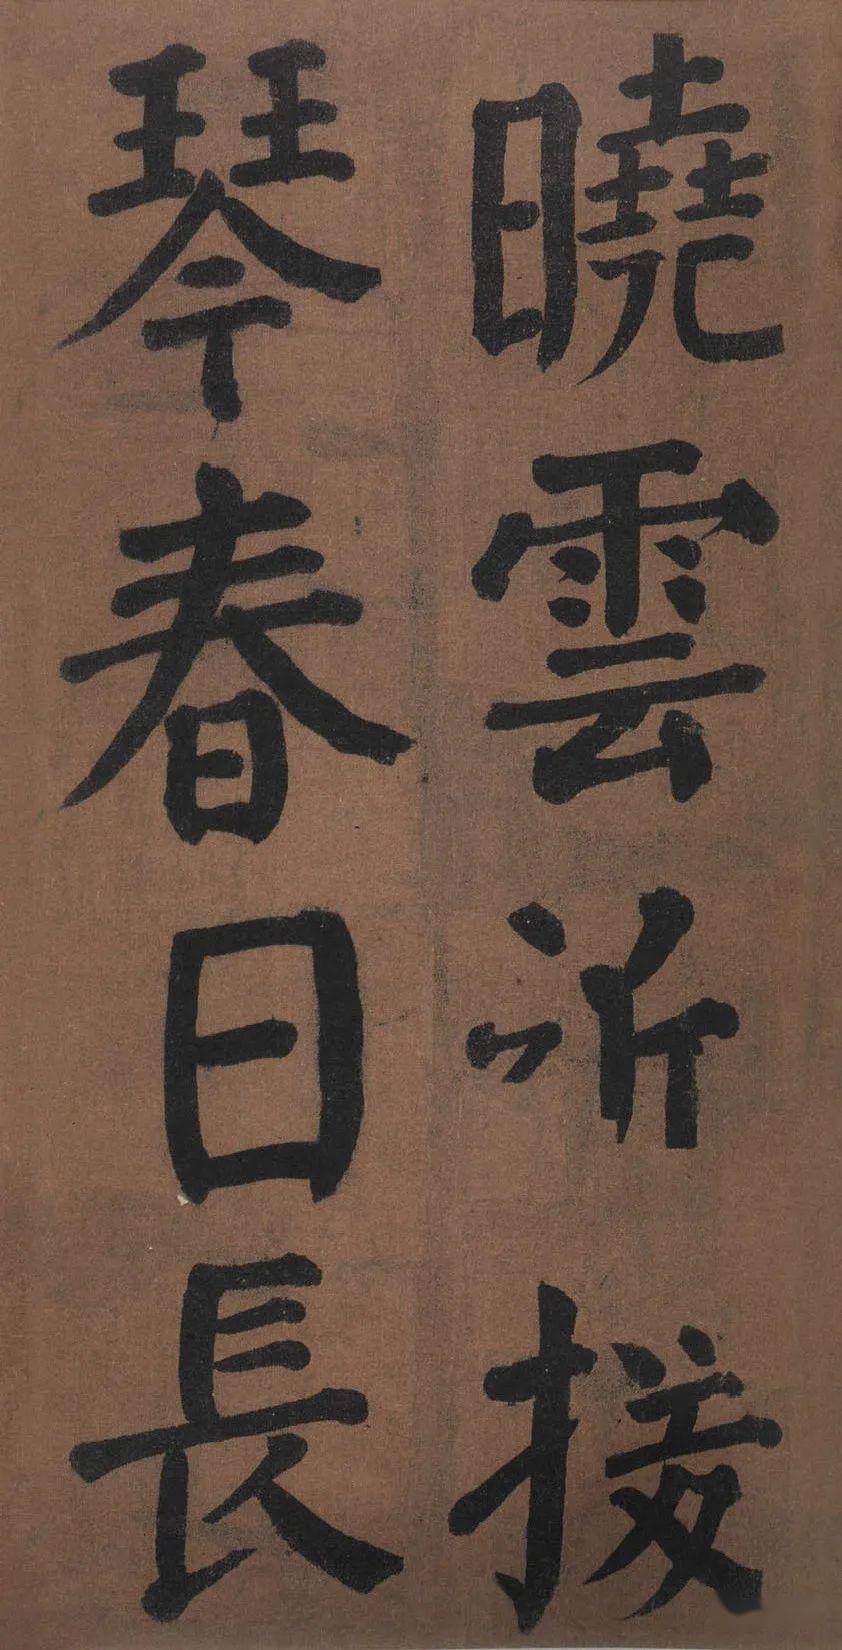 曉雲沂接
琴春日長